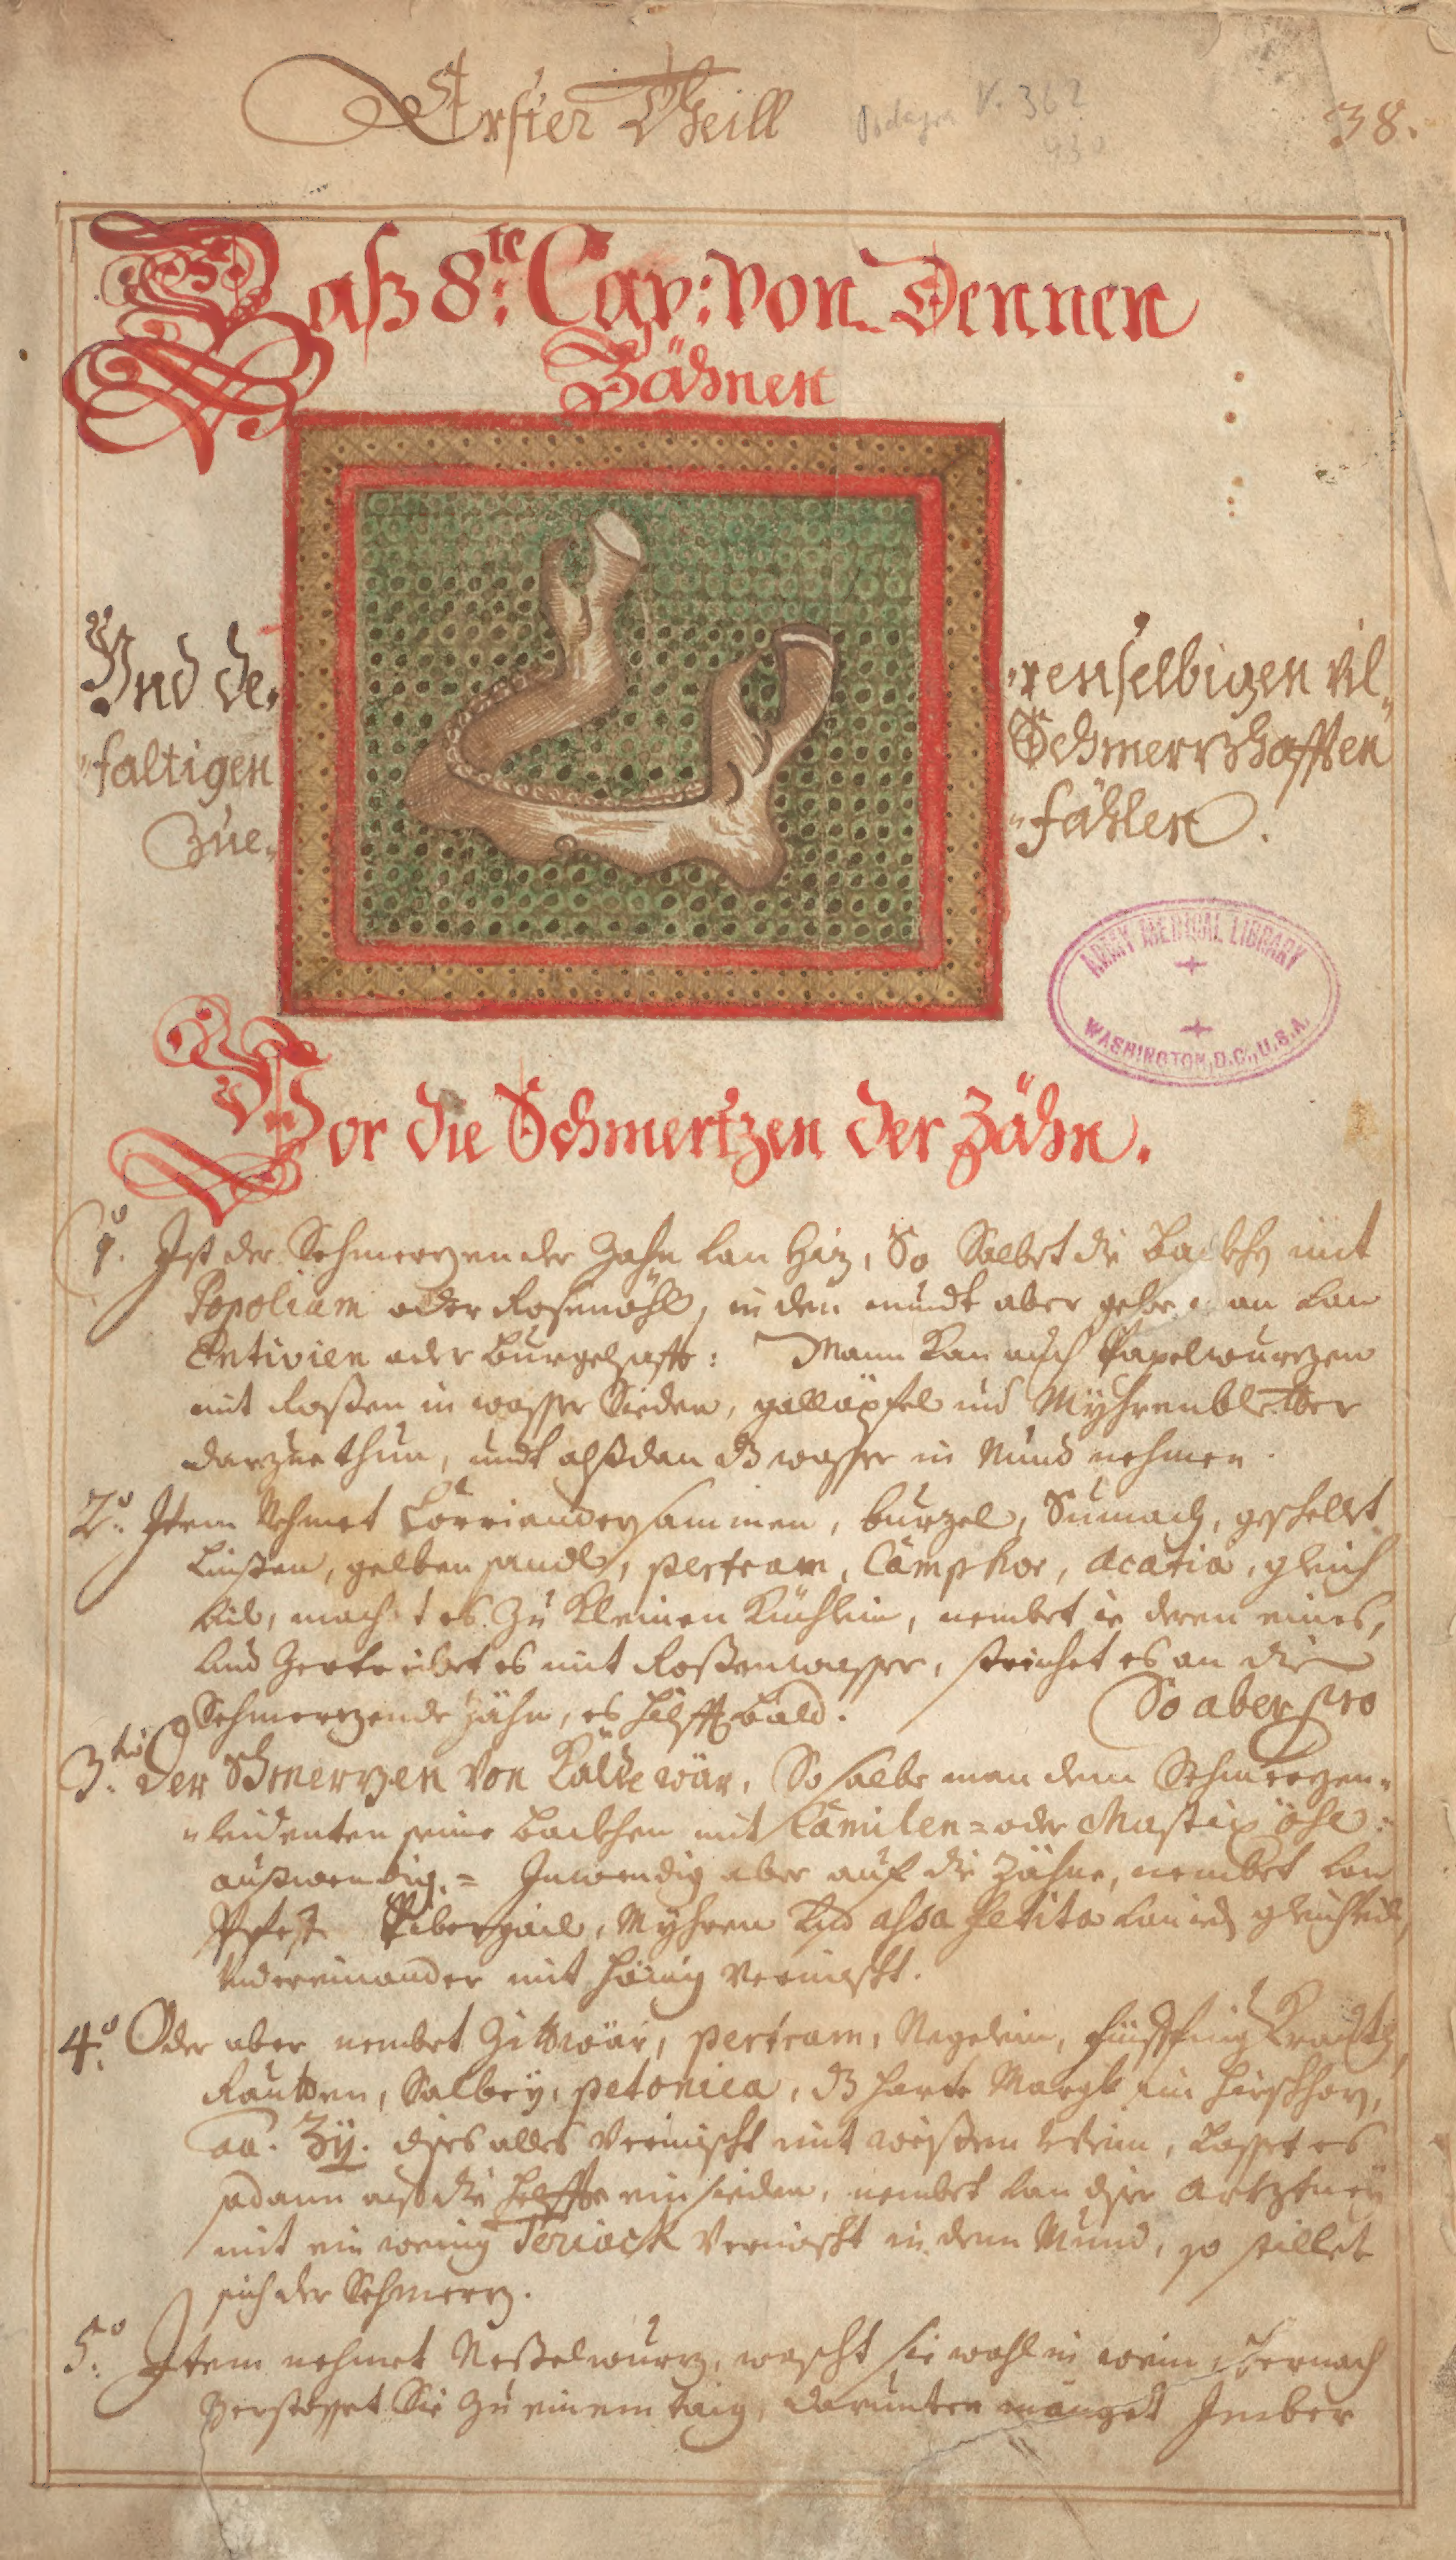 Erster Theill
Podagra V. 362
930
38.
Daß 8te: Cap: von Dennen
Zähnen
Vnd de= =renselbigen vil=
=faltigen Schmerzhafften
Zue= =fählen.
ARMY MEDICAL LIBRARY
WASHINGTON, D.C., U.S.A.
Vor die Schmertzen der Zähn.
1o. Ist der Schmerzen der Zähn von Hiz, So Salbet die backhen mit
Popolium oder Rosenöhl, in den mundt aber gebe man von
Entivien oder burgelsafft: Mann kan auch Papelwurzen
mit Roßen in wasser Sieden, galläpfel und Myhrenbletter
darzue thun, undt alßdan dz wasser in Mund nehmen.
2o. Item Nehmet Corriandersammen, burzel, Sumach, geschelt
Linßen, gelben sandl, pertram, Camphor, acatia, gleich
vil, machet es zu kleinen küchlein, nembet ie deren eines,
vnd Zertreibet es mit Roßenwasser, streichet es an die
Schmerzende zähn, es hilfft bald. So aber pro
3tio der Schmerzen von Kälte wär, So salbe man dem Schmerzen=
=leidenten seine backhen mit Camilen= oder Mastix öhl:
außwendig.= Inwendig aber auf die zähne, nembet von
Pibergail, Myhren vnd assa fetita von ieden gleichvil,
vndereinander mit hönig vermischt.
4o. Oder aber nembet Zittwär, pertram, Negelein, fünffing Kraut,
Rautten, Salbey, petonica, dz harte Margk im hirschhorn,
an. ʒij. dises alles vermischt mit weißen Wein, lasset es
sodann auf die helffte einsieden, nembet von diser Artzeney
mit ein wenig Teriack vermischt in den Mund, so stillet
sich der Schmerz.
5o. Item nehmet Neßelwurz, wascht sie wohl in wein, hernach
Zerstosset Sie zu einem taig, darunter menget Imber